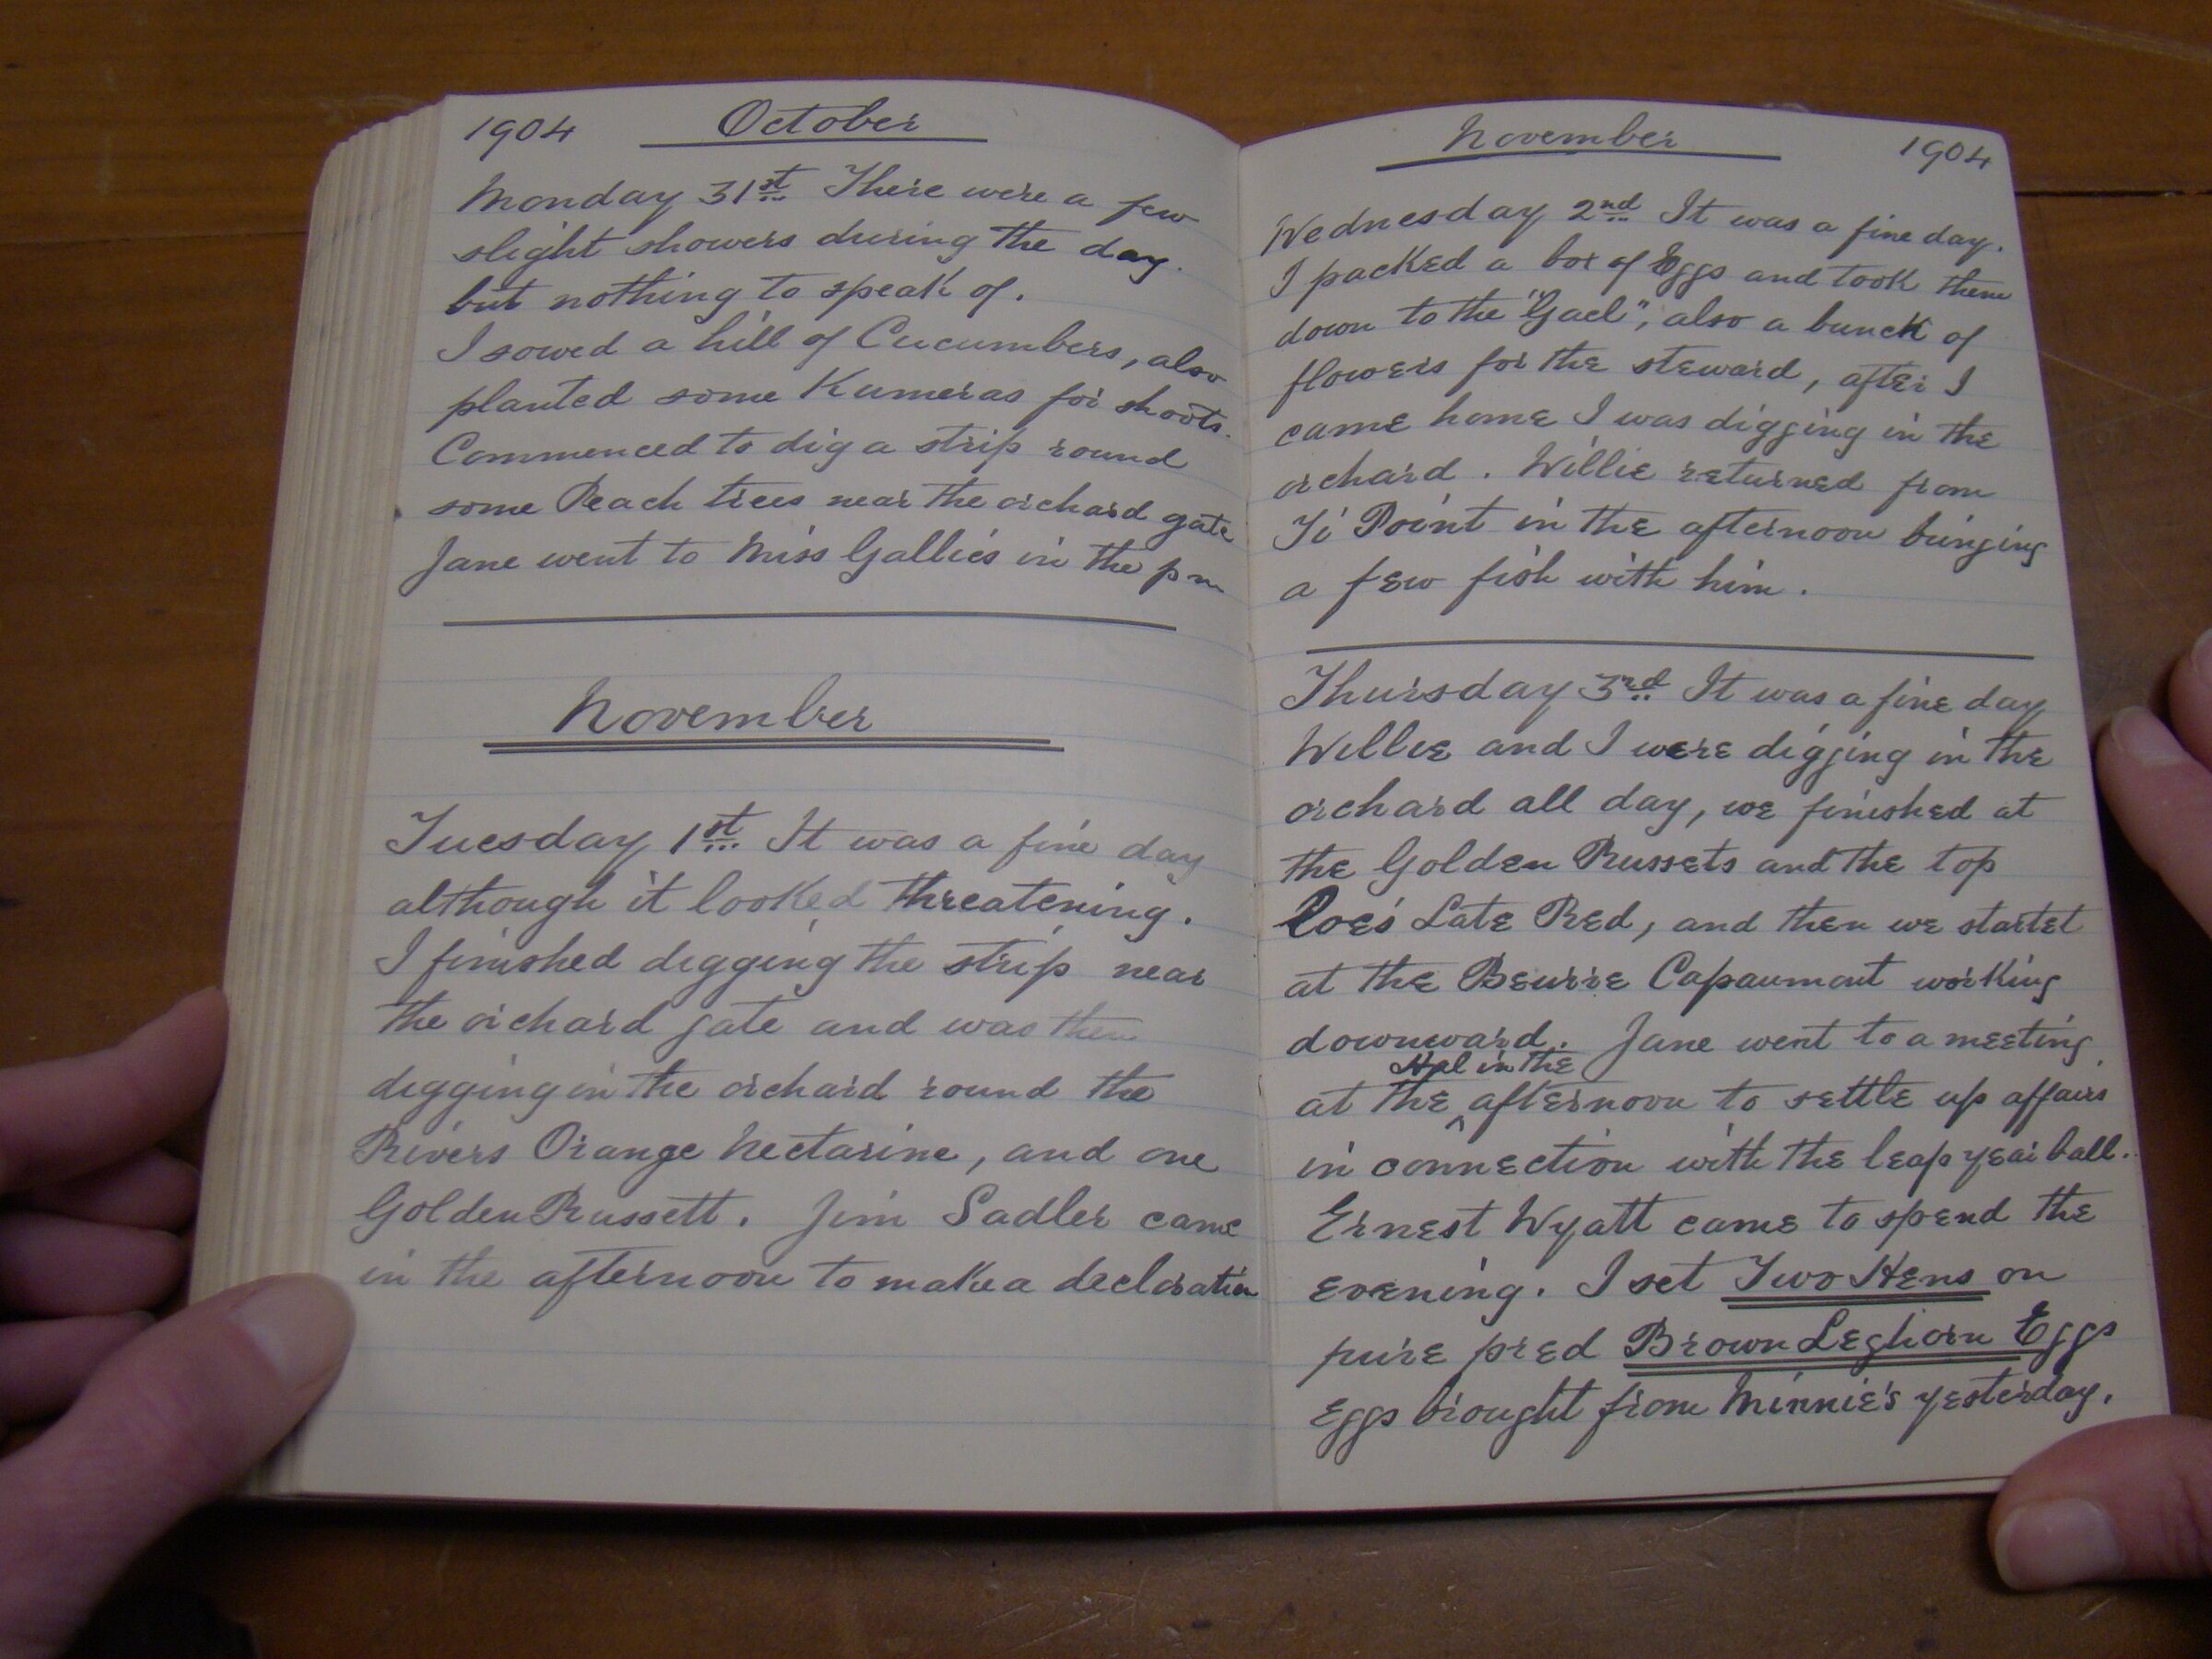 1904 October
Monday 31st There were a few
slight showers during the day.
but nothing to speak of.
I sowed a hill of Cucumbers, also
planted some Kumeras for shoots.
Commenced to dig a strip round
some Peach trees near the orchard gate
Jane went to Miss Gallie's in the pm
November
Tuesday 1st It was a fine day
although it looked threatening.
I finished digging the strip near
the orchard gate and was then
digging in the orchard round the
Rivers Orange Nectarine, and one
Golden Russett. Jim Sadler came
in the afternoon to make a decloration
November 1904
Wednesday 2nd It was a fine day.
I packed a box of Eggs and took them
down to the "Gael", also a bunch of
flowers for the steward, after I
came home I was digging in the
orchard. Willie returned from
Ti Point in the afternoon bringing
a few fish with him.
Thursday 3rd It was a fine day
Willie and I were digging in the
orchard all day, we finished at
the Golden Russets and the top
Roe's Late Red, and then we startet
at the Beurre Capaumont working
downward. Jane went to a meeting
Hal in the
at the ^ afternoon to settle up affairs
in connection with the leap year ball.
Ernest Wyatt came to spend the
evening. I set Two Hens on
pure pred Brown Leghorn Eggs
Eggs brought from Minnie's yesterday.